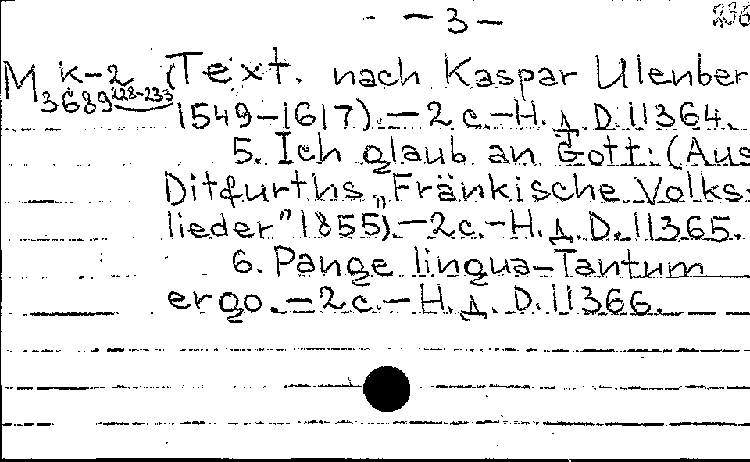 - - 3 -
M K-2 (Text. nach Kaspar Ulenber
3689 228-233 1549-1617).- 2 с.-Н. д. D. 11364.
5. Ich glaub an Gott: (Aus
Ditfurths „Fränkische Volks-
lieder" 1855).-2с.-Н. д. D. 11365.
6. Pange lingua-Tantum
ergo.-2с.- Н. д. D. 11366.